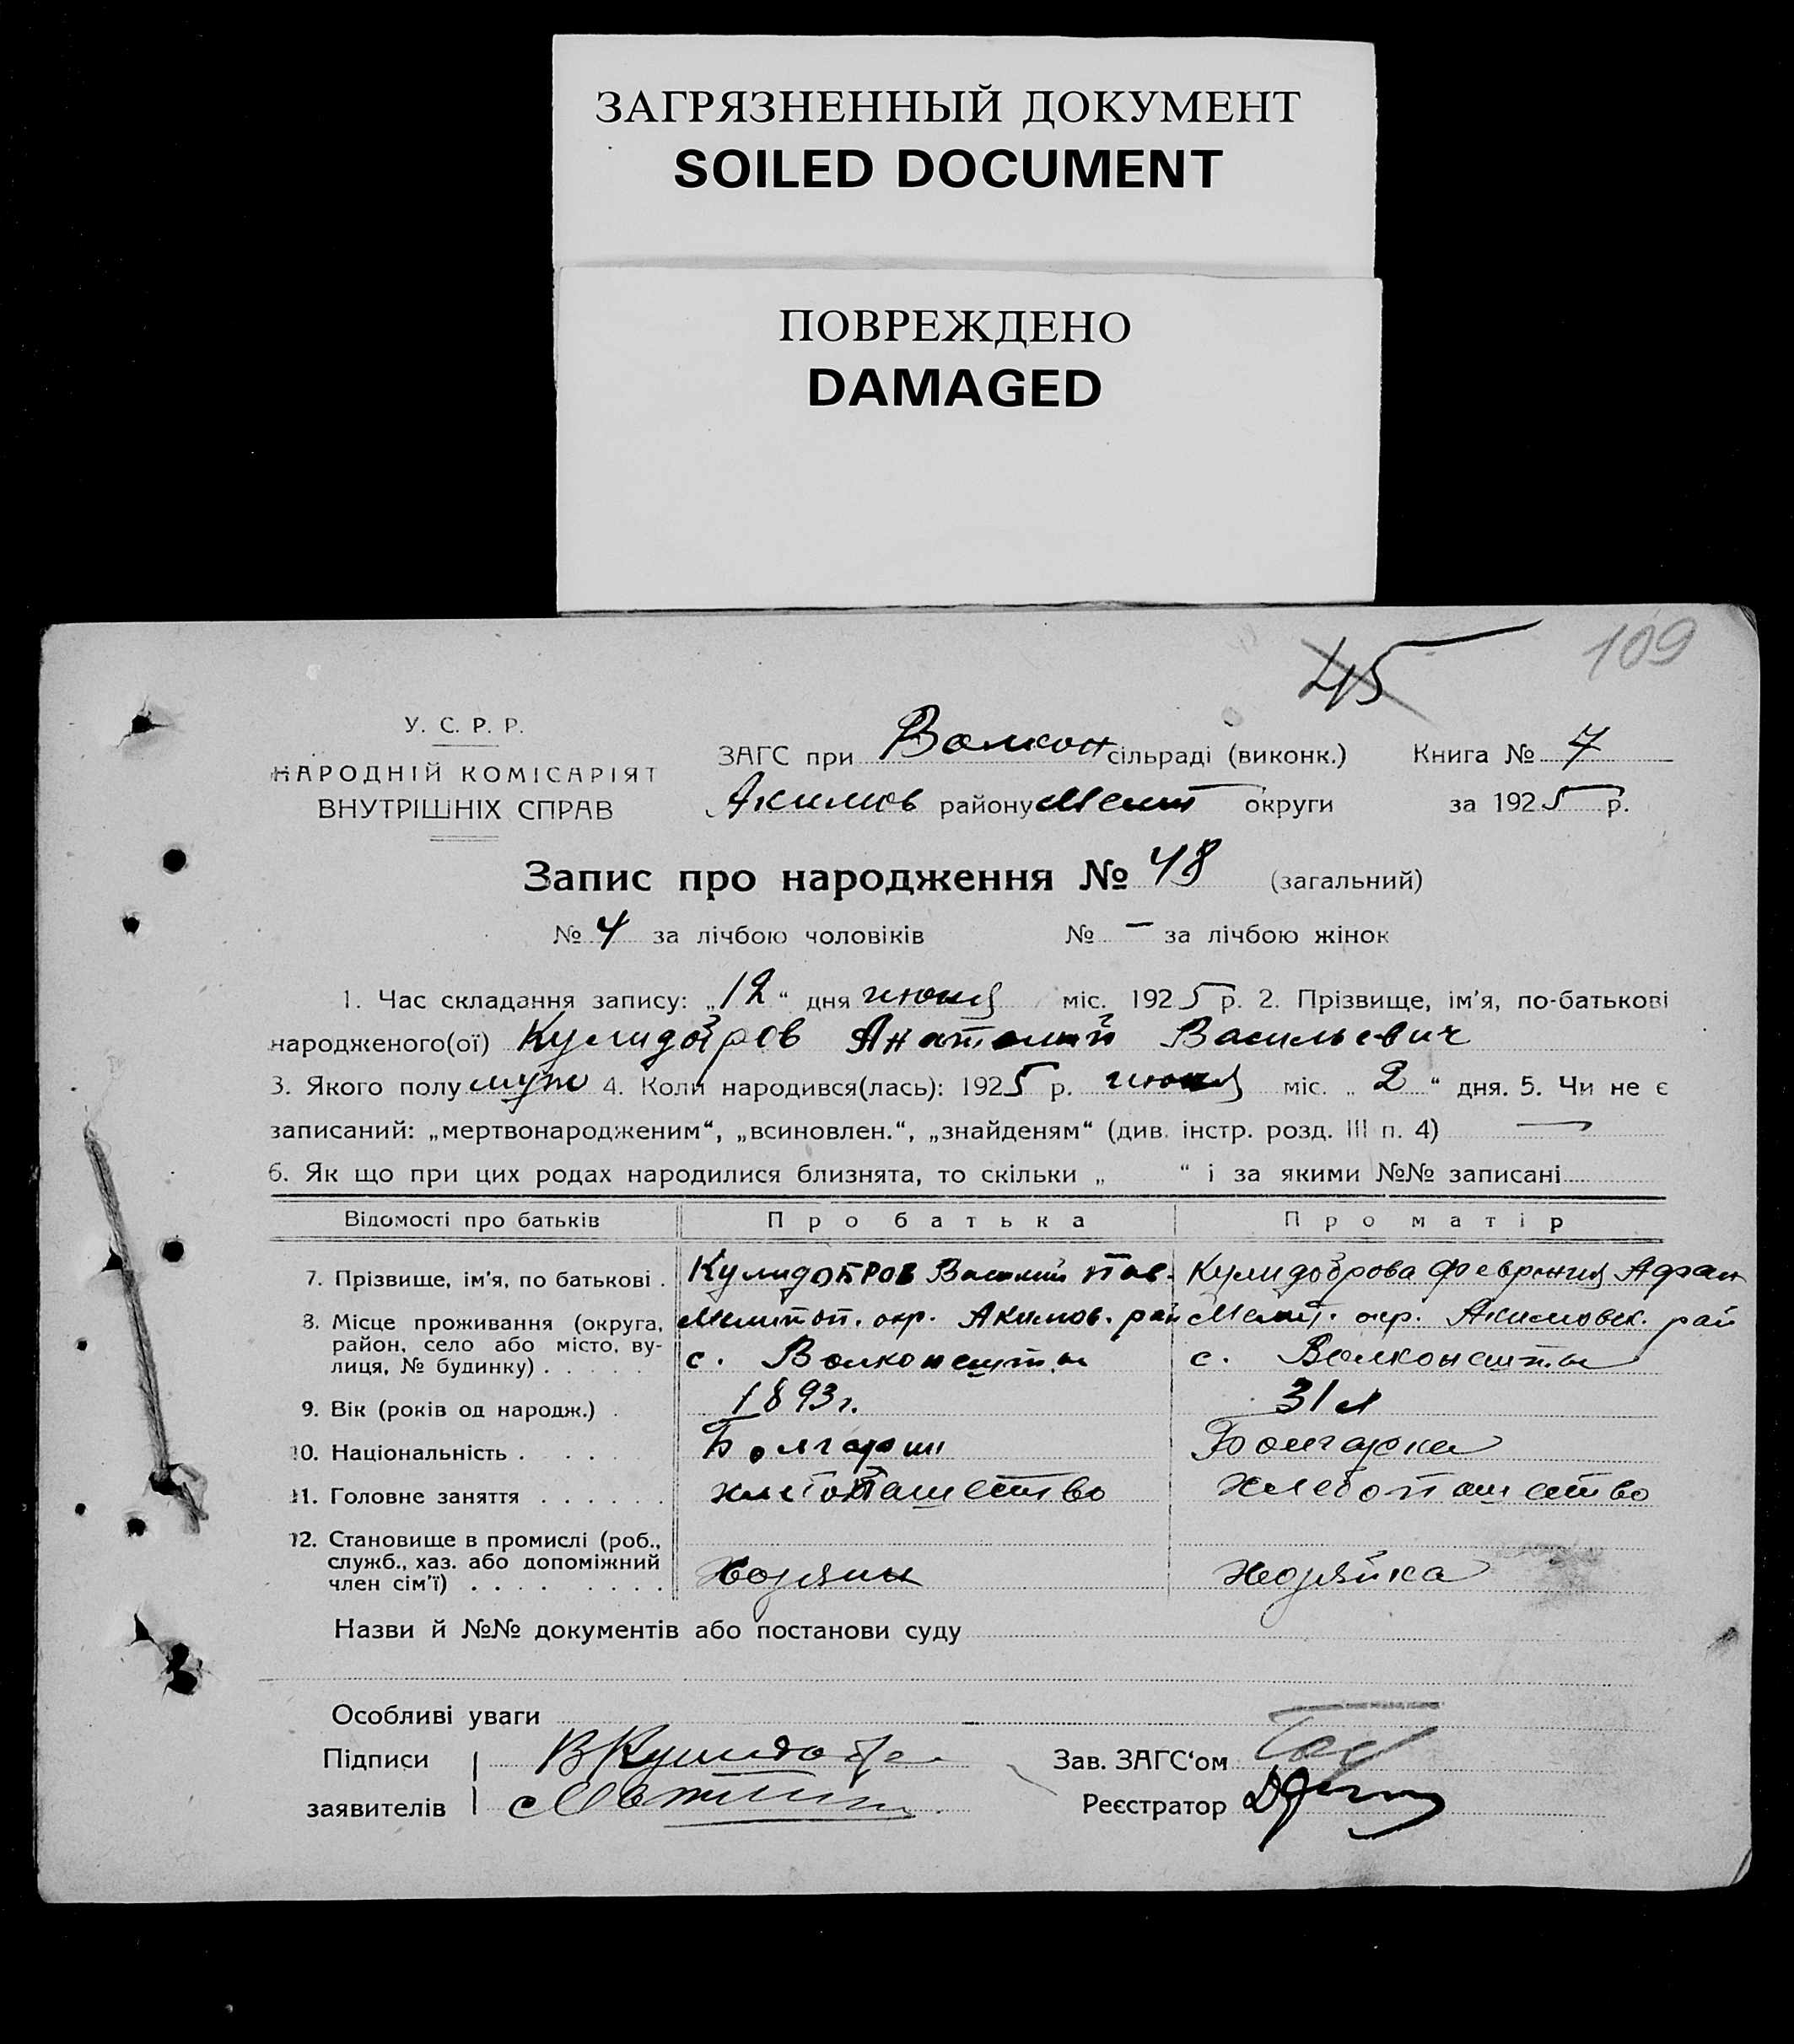 ЗАГРЯЗНЕННЫЙ ДОКУМЕНТ
SOILED DOCUMENT
ПОВРЕЖДЕНО
DAMAGED
45 109
У. С. Р. Р.
НАРОДНІЙ КОМІСАРІЯТ
ВНУТРІШНІХ СПРАВ
ЗАГС при Волкон сільраді (виконк.) Книга № 7
Акимов району Мелит округи за 1925 р.
Запис про народження № 48 (загальний)
№ 4 за лічбою чоловіків № — за лічбою жінок
1. Час складання запису: „12“ дня июня міс. 1925 р. 2. Прізвище, ім'я, по-батькові
народженого(ої) Кулидобров Анатолий Васильевич
3. Якого полу муж 4. Коли народився(лась): 1925 р. июня міс. „2“ дня. 5. Чи не є
записаний: „мертвонародженим“, „всиновлен.“, „знайденям“ (див. інстр. розд. III п. 4) —
6. Як що при цих родах народилися близнята, то скільки „ “ і за якими №№ записані
Відомості про батьків Про батька Про матір
7. Прізвище, ім'я, по батькові . Кулидобров Василий Пав. Кулидоброва Феврония Афан
8. Місце проживання (округа, район, село або місто, вулиця, № будинку) . Мелитоп. окр. Акимов. рай с. Волконешты Мелит. окр. Акимовск. рай с. Волконешты
9. Вік (років од народж.) . 1893 г. 31 л
10. Національність . Болгарин Болгарка
11. Головне заняття . Хлебопашество Хлебопашество
12. Становище в промислі (роб., служб., хаз. або допоміжний член сім'ї) . Хозяин Хозяйка
Назви й №№ документів або постанови суду
Особливі уваги
Підписи В Кулидобр Зав. ЗАГС'ом
заявителів Реєстратор